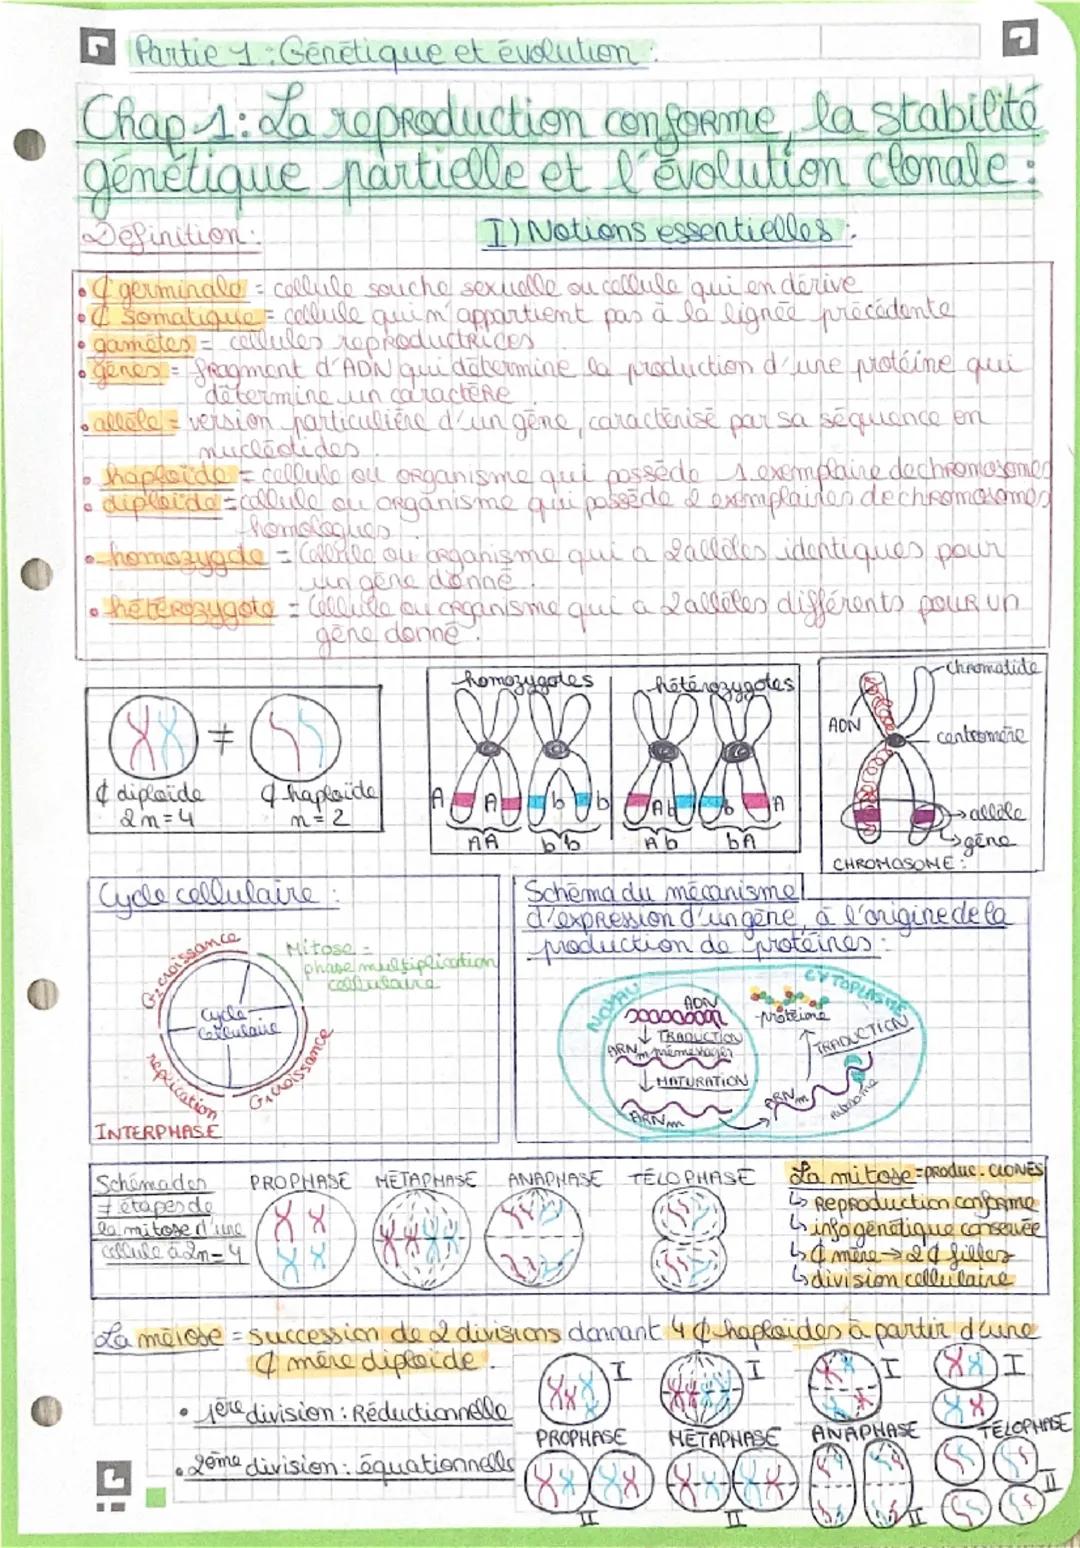 Partie 1 : Génétique et évolution :
Chap 1 : La reproduction conforme, la stabilité
génétique partielle et l'évolution clonale :
Définition :
I) Notions essentielles :
• ₵ germinale = cellule souche sexuelle ou cellule qui en dérive
• ₵ somatique = cellule qui n'appartient pas à la lignée précédente
• gamètes = cellules reproductrices
• gènes = fragment d'ADN qui détermine la production d'une protéine qui
détermine un caractère.
• allèle = version particulière d'un gène, caractérisé par sa séquence en
nucléotides.
• haploïde = cellule ou organisme qui possède 1 exemplaire de chromosomes
• diploïde = cellule ou organisme qui possède 2 exemplaires de chromosomes
homologues.
• homozygote = Cellule ou organisme qui a 2 allèles identiques pour
un gène donné.
• hétérozygote = Cellule ou organisme qui a 2 allèles différents pour un
gène donné.
≠
₵ diploïde
2n = 4
₵ haploïde
n = 2
homozygotes
hétérozygotes
A A b b A b b A
AA bb Ab bA
chromatide
ADN
centromère
allèle
gène
CHROMOSOME :
Cycle cellulaire :
G2 croissance
Mitose =
phase multiplication
cellulaire
cycle
cellulaire
réplication
G1 croissance
INTERPHASE
Schéma du mécanisme
d'expression d'un gène, à l'origine de la
production de protéines :
NOYAU
CYTOPLASME
ADN
↓ TRADUCTION
ARNm prémessager
↓ MATURATION
ARNm
protéine
TRADUCTION
ARNm
ribosome
Schéma des
≠ étapes de
la mitose d'une
cellule à 2n=4
PROPHASE
MÉTAPHASE
ANAPHASE
TÉLOPHASE
La mitose = produc. CLONES
↳ Reproduction conforme
↳ info génétique conservée
↳ ₵ mère → 2 ₵ filles
↳ division cellulaire
La méiose = succession de 2 divisions donnant 4 ₵ haploïdes à partir d'une
₵ mère diploïde.
• 1ère division : Réductionnelle
• 2ème division : équationnelle
I
I
I
I
PROPHASE
MÉTAPHASE
ANAPHASE
TÉLOPHASE
II
II
II
II